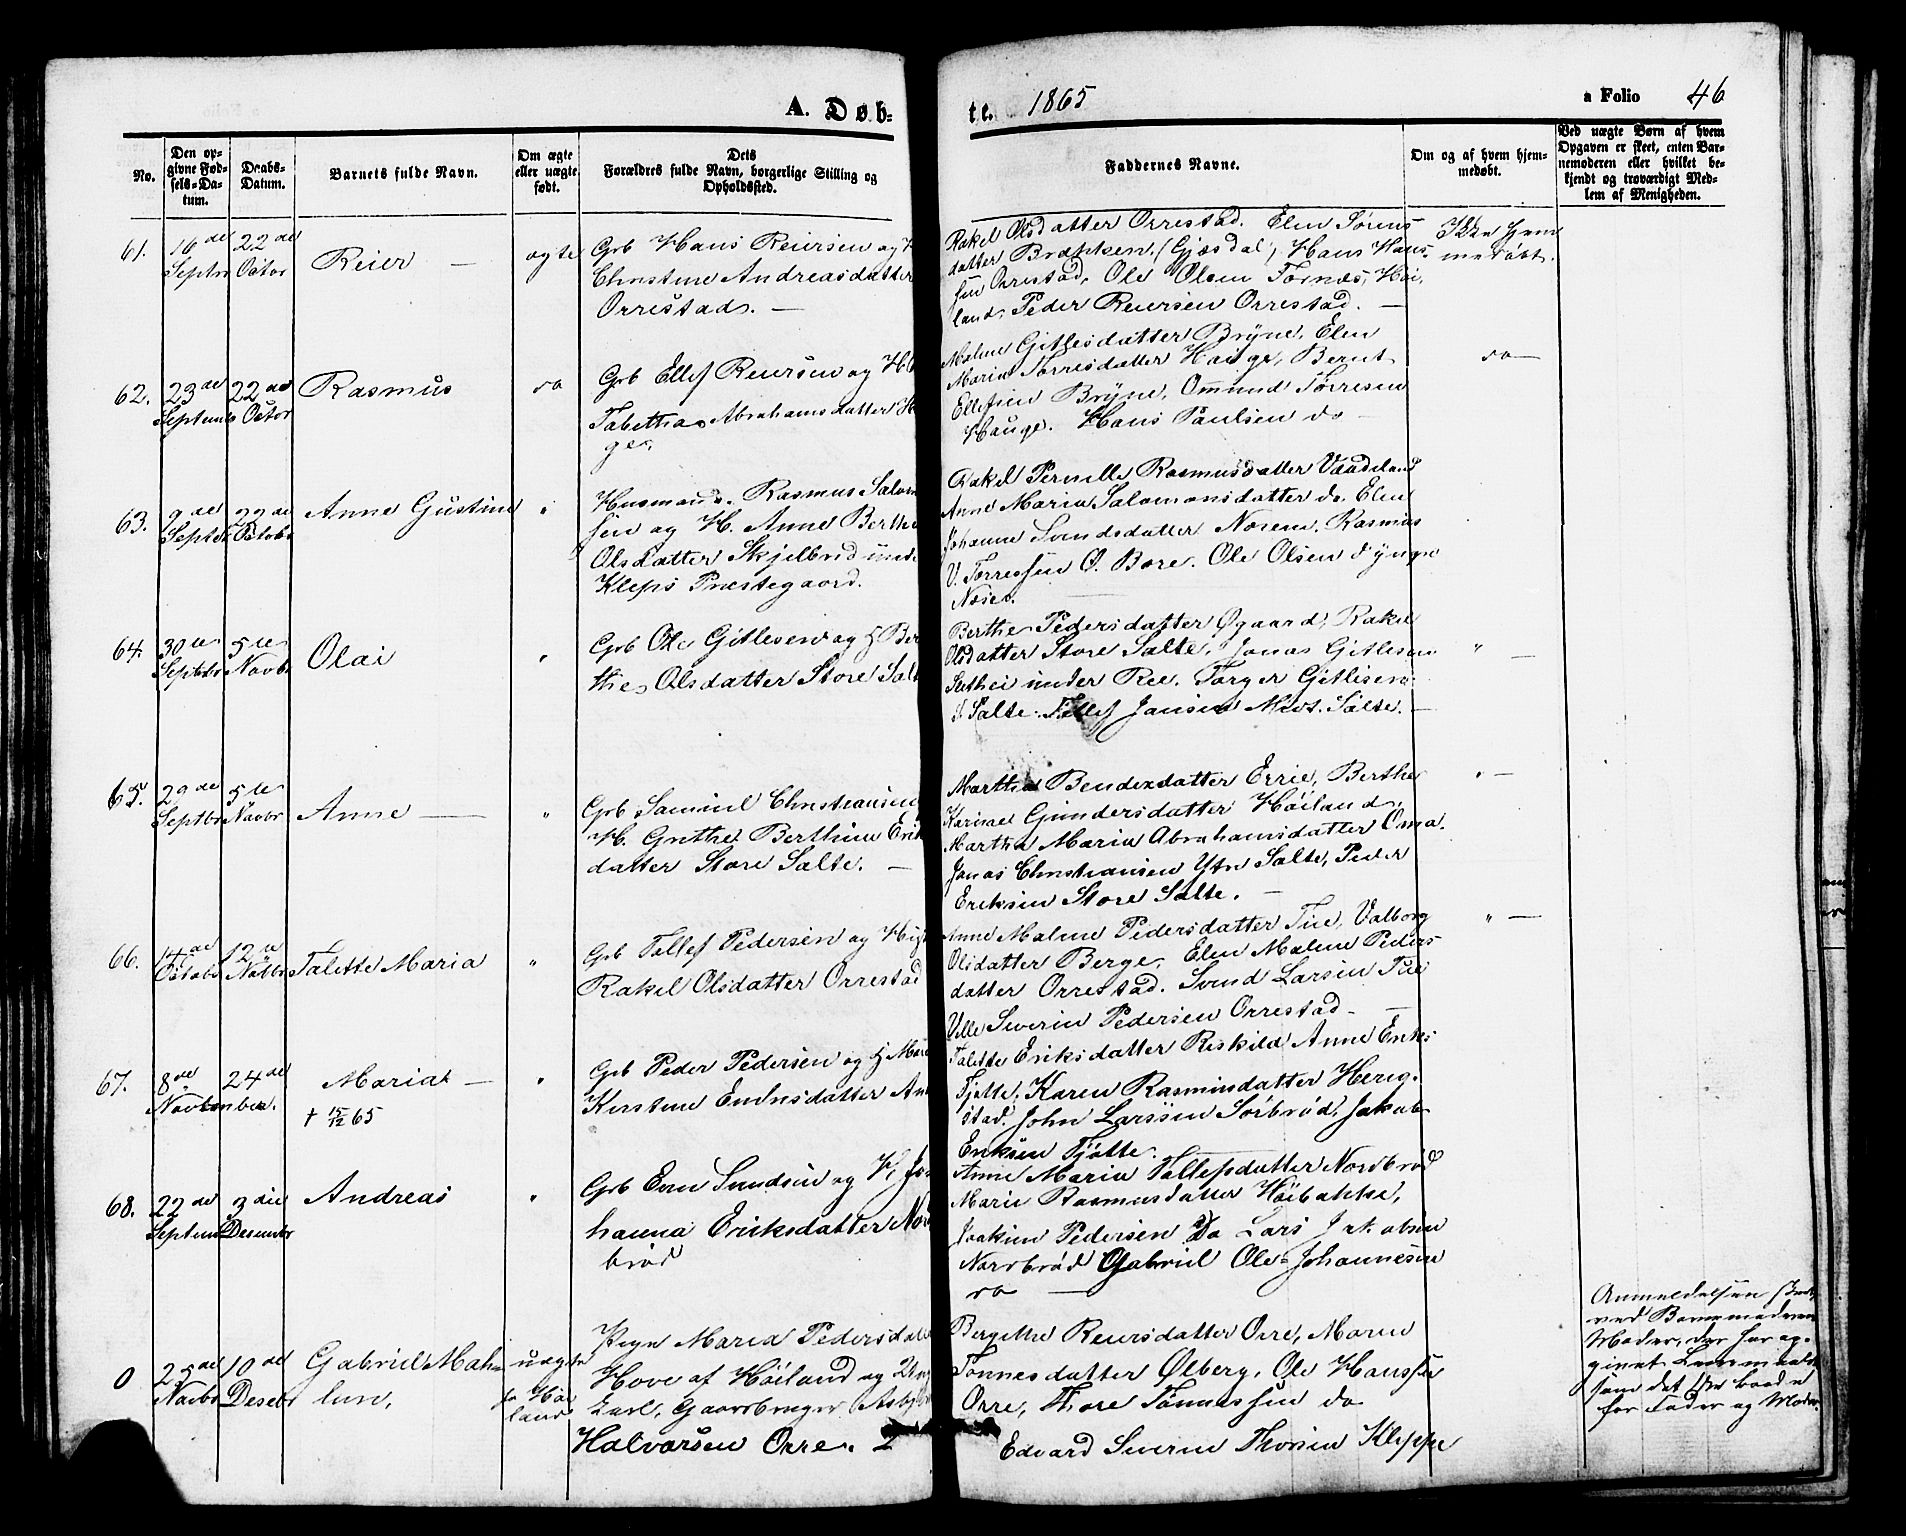 A. Døb-
te. 1865
a Folio 46
No.
Den op-
givne Fød-
sels-Da-
tum.
Daabs-
Datum.
Barnets fulde Navn.
Om ægte
eller uægte
født.
Dets
Forældres fulde Navn, borgerlige Stilling og
Opholdssted.
Faddernes Navne.
Om og af hvem hjem-
medøbt.
Ved uægte Børn af hvem
Opgaven er skeet, enten Bar-
nemoderen eller hvilket be-
kjendt og troværdigt Med-
lem af Menigheden.
61.
16de
Septbr
22de
Octor
Reier —
ægte
Grb Hans Reiersen og
Christine Andreasdatter
Orrestad. —
Rakel Olsdatter Orrestad. Elen Sørens
datter Brækken, (Gjesdal), Hans Hans-
sen Orrestad, Ole Olsen Tornæs, Høi-
land, Peder Reiersen Orrestad. —
Ikke hjem
medøbt.
62.
23de
Septemb
22de
Octor
Rasmus
do
Grb Ellef Reiersen og H
Tabettha Abrahamsdatter H
ge.
Malene Gitlesdatter Bryne, Elen
Maria Torresdatter Hauge, Bernt
Ellefsen Bryne, Ommund Torresen
Hauge. Hans Paulsen do —
do —
63.
9de
Septbr
22de
Octobr
Anne Gustine
"
Husmand. Rasmus Salom
sen og H. Anne Berthe
Olsdatter Skjelbred unde
Kleps Præstegaard.
Rakel Pernille Rasmusdatter Vaadeland
Anne Maria Salomonsdatter do. Elen
Johanne Svendsdatter Noreim, Rasmus
V. Torressen O. Bore. Ole Olsen
64.
30te
Septbr
5te
Novb
Olai
"
Grb Ole Gitlesen og H Ber
the Olsdatter Store Salt
Berthe Pedersdatter Øgaard, Rakel
Olsdatter Store Salte, Jonas Gitlesen
under Ree. Torger Gitlesen
S. Salte. Tollef Jansen Salte. —
" —
65.
29de
Septbr
5te
Novbr
Anne —
"
Grb Samuel Christiansen
H. Grethe Berthine Erik
datter Store Salte. —
Martha Bendixdatter Errie, Berthe
Karine Gundersdatter Høiland,
Martha Maria Abrahamsdatter Oma.
Jonas Christiansen Ytre Salte, Peder
Eriksen Store Salte. —
" —
66.
14de
Octobr
12te
Novbr
Talette Maria
"
Grb Tollef Pedersen og H
Rakel Olsdatter Orrestad
Anne Malene Pedersdatter Tue, Valborg
Olsdatter Berge, Elen Malene Peders-
datter Orrestad. Svend Larsen Tue
Severin Pedersen Orrestad —
" —
67.
8de
24de
November.
Maria —
† 15/12 65
"
Grb Peder Pedersen og H
Kirstine Endresdatter
Talette Eriksdatter Riskild Anne Eriks
Tjøtte, Karen Rasmusdatter Herig-
stad. John Larssen Sørbrød, Jakob
Eriksen Tjøtte.
68.
22de
Septemb
3die
Desembr
Andreas
"
Grb Even Svendsen og H. Jo-
hanna Eriksdatter Nord
brød
Anne Maria Tollefsdatter Nordbrød
Marie Rasmusdatter Høibakke,
Joakim Pedersen Do Lars Jakobsen
Nordbrød Gabriel Ole Johannesen
do —
0
25de
Novbr
10de
Desebr
Gabriel
uægte
Høi
land
Pige Maria Pedersdatt
Hove af Høiland og Ung
karl, Gaardbruger
Halvorsen Orre. 2
Bergithe Reiersdatter Orre, Maren
Tønnesdatter Ølberg, Ole Hanssen
Orre, Thore Tønnessen do
Edvard Severin Thorsen Kleppe
Anmeldelsen skeet
ved Barnemoderens
Moder, der har op-
givet
som det baade
for Fader og Moder